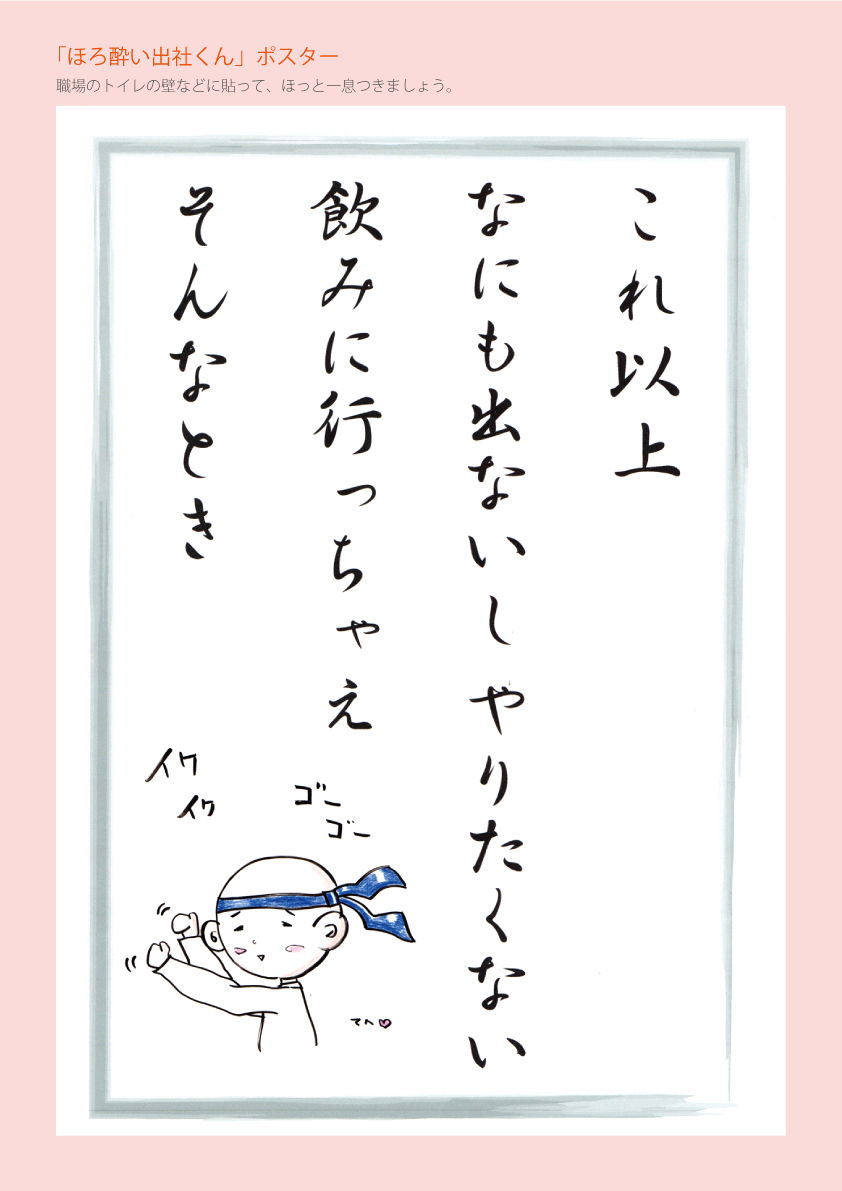 「ほろ酔い出社くん」ポスター
職場のトイレの壁などに貼って、ほっと一息つきましょう。
これ以上
なにも出ないしやりたくない
飲みに行っちゃえ
そんなとき
イケ
イケ
ゴー
ゴー
てへ♡